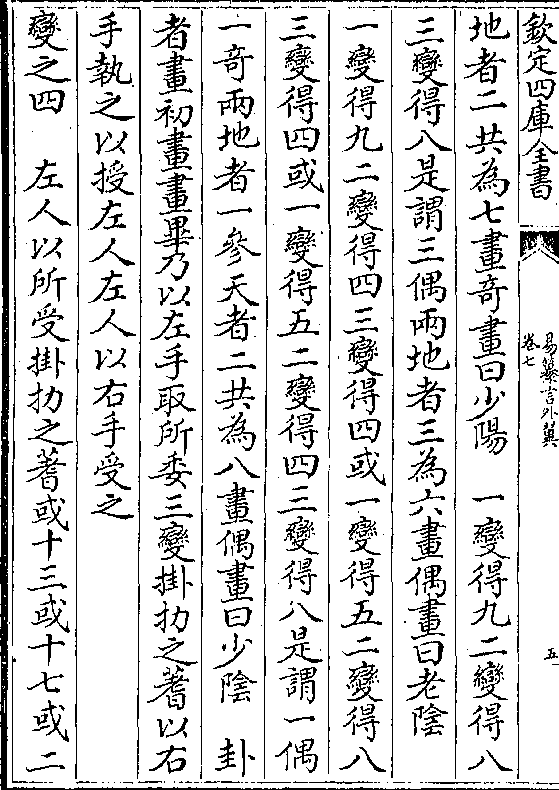 欽定四庫全書
易纂言外翼
卷七
五
地者二共為七畫奇畫曰少陽　一變得九二變得八
三變得八是謂三偶兩地者三為六畫偶畫曰老陰
一變得九二變得四三變得四或一變得五二變得八
三變得四或一變得五二變得四三變得八是謂一偶
一奇兩地者一參天者二共為八畫偶畫曰少陰　卦
者畫初畫畫畢乃以左手取所委三變掛扐之蓍以右
手執之以授左人左人以右手受之
變之四　左人以所受掛扐之蓍或十三或十七或二